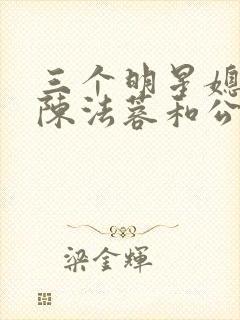 三个明星媳
陈法蓉和公
梁金輝